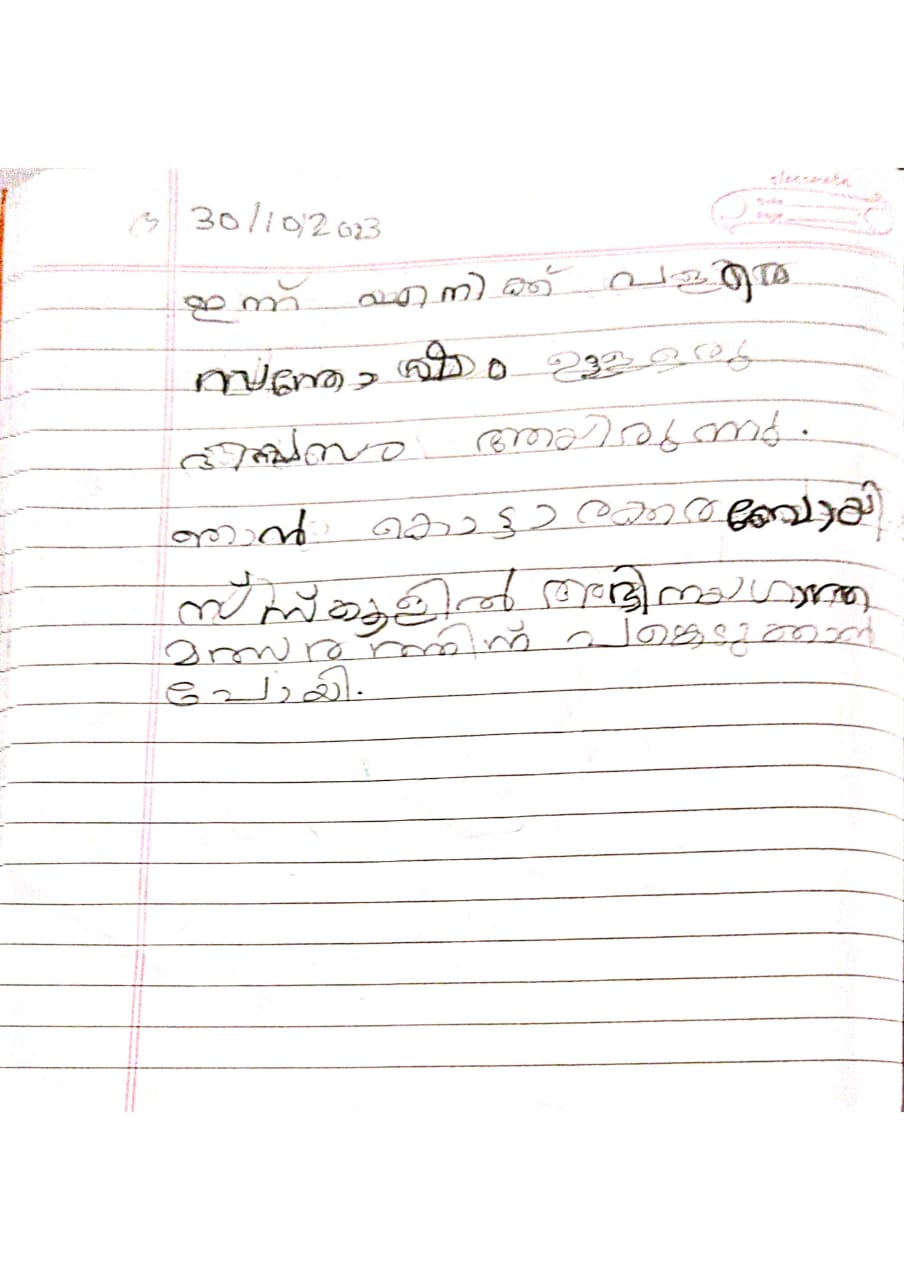 classmate
Date
Page
30/10/2023
ഇന്ന് എനിക്ക് വളരെ
സന്തോഷം ഉള്ളളരു
ദിവസം ആയിരുന്നു.
ഞാൻ കൊട്ടാരക്കര ബോയി
സ് സ്കൂളിൽ അഭിനയഗാന
മത്സരത്തിന് പങ്കെടുത്താൻ
പോയി.